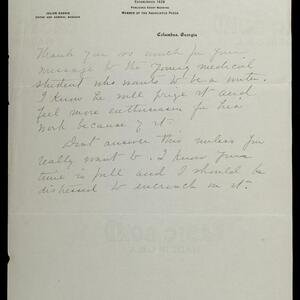 ESTABLISHED 1828
JULIAN HARRIS
EDITOR AND GENERAL MANAGER
PUBLISHED EVERY MORNING
MEMBER OF THE ASSOCIATED PRESS
Columbus, Georgia
Thank you so much for your
message to the young medical
student who wants to be a writer.
I know he will prize it and
feel more enthusiasm for his
work because of it.
Don't answer this unless you
really want to. I know your
time is full and I should be
distressed to encroach on it.